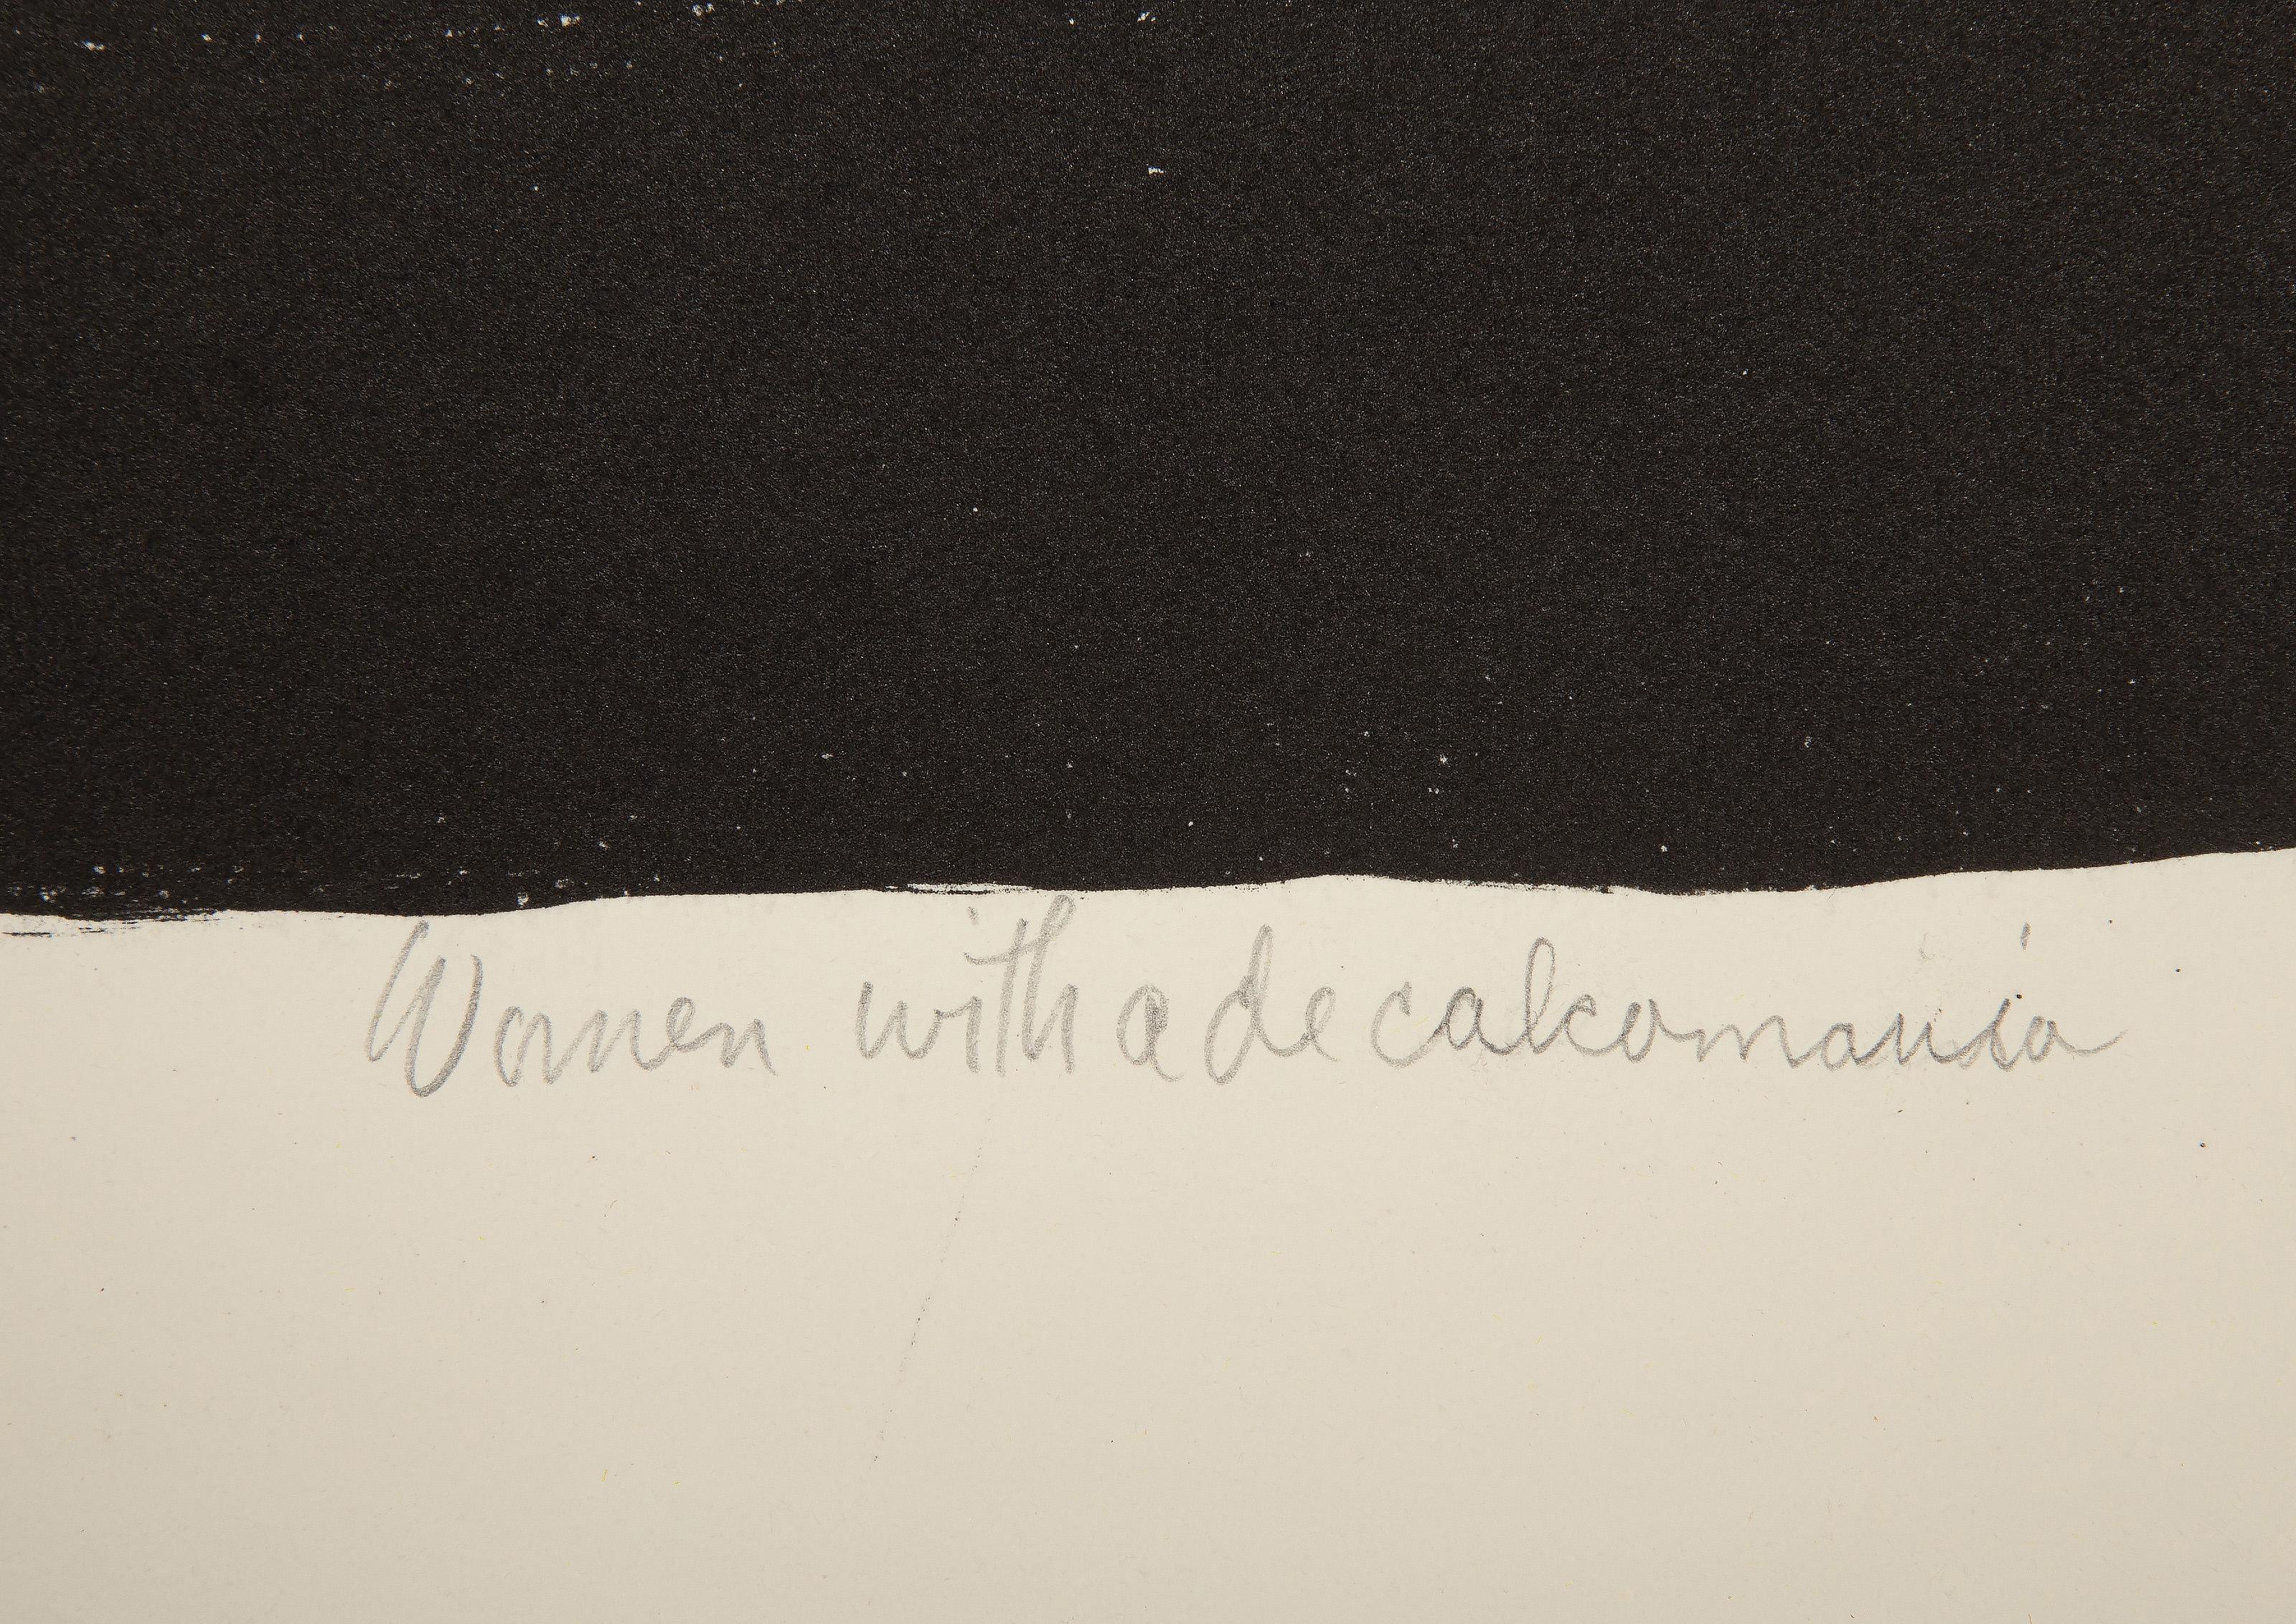 Women with a decalcomania